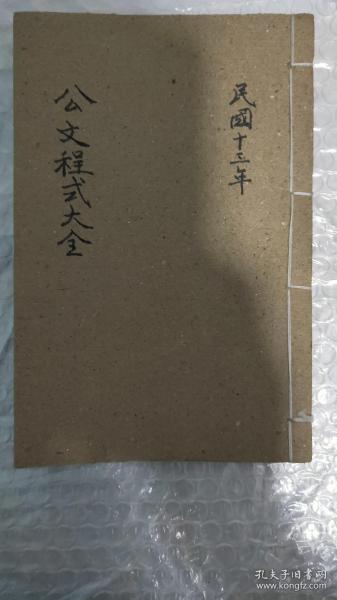 民國十三年
公文程式大全
孔夫子旧书网
www.kongfz.com